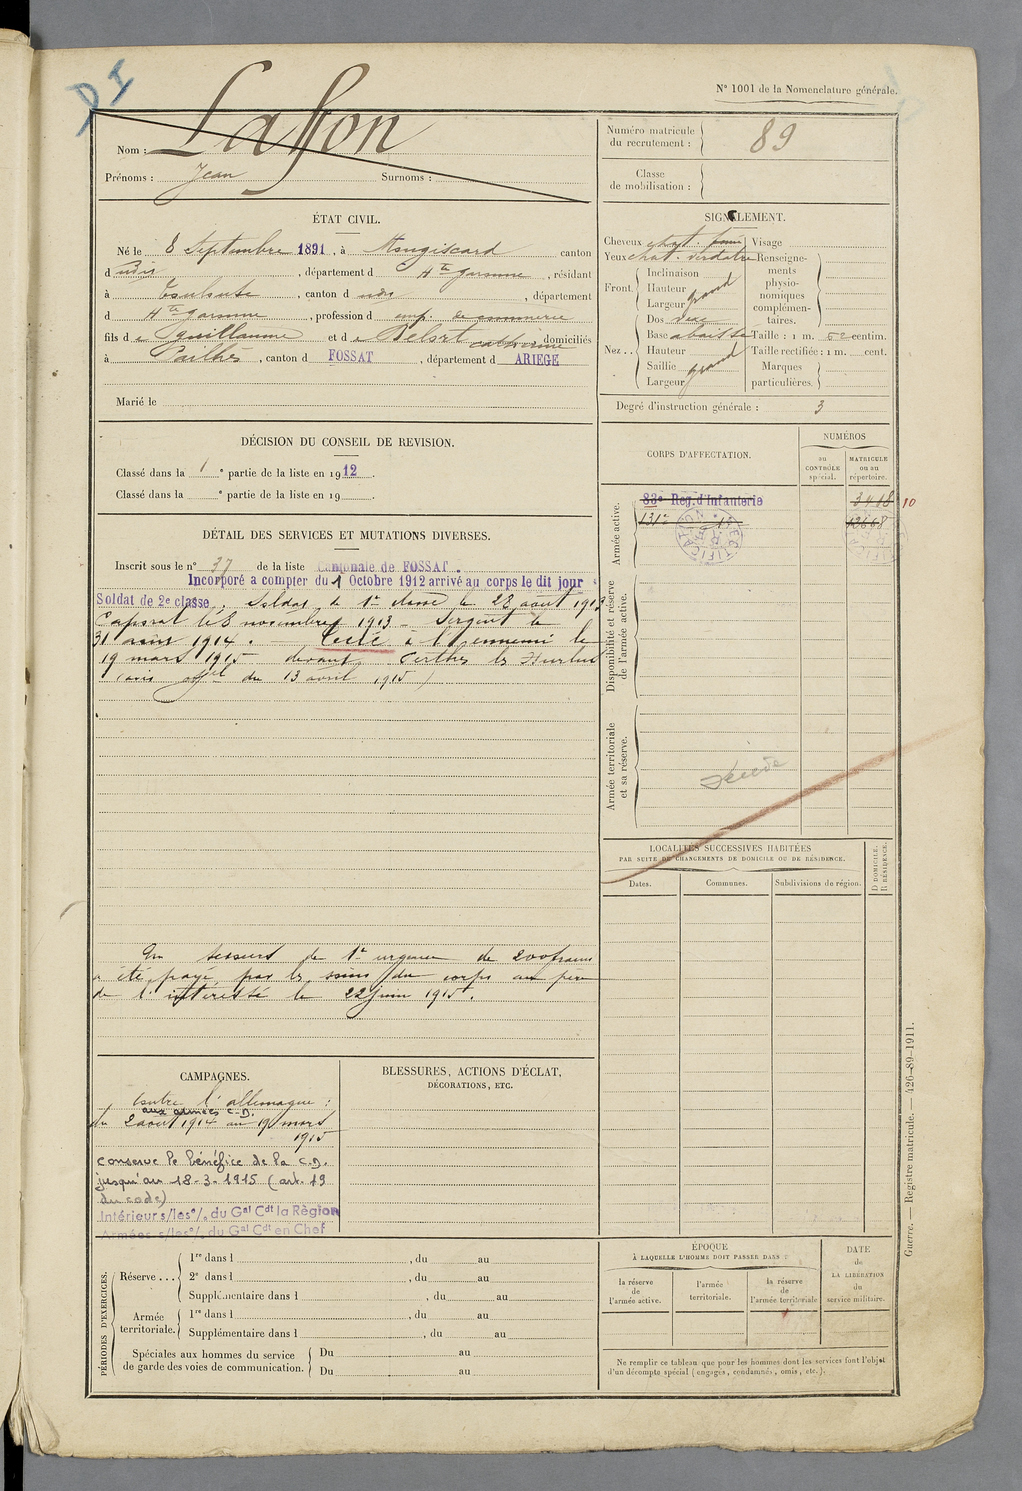 N° 1001 de la Nomenclature générale.
Nom : Laffon
Prénoms : Jean Surnoms :
Numéro matricule du recrutement : 89
Classe de mobilisation :
ÉTAT CIVIL.
Né le 8 Septembre 1891, à Mongiscard canton
d udit, département d Hte garonne, résidant
à Toulouse, canton d udit, département
d Hte garonne, profession d emp. de commerce
fils de guillaume et de Delort catherine domiciliés
à Pailhès, canton d FOSSAT, département d ARIEGE
Marié le
SIGNALEMENT.
Cheveux chat. foncé Visage
Yeux chat. verdâtre Renseignements physionomiques complémentaires.
Front. Inclinaison
Hauteur
Largeur grand
Nez.. Dos vexe
Base abaissée Taille : 1 m. 52 centim.
Hauteur Taille rectifiée : 1 m. cent.
Saillie grand Marques particulières.
Largeur
Degré d'instruction générale : 3
DÉCISION DU CONSEIL DE REVISION.
Classé dans la 1e partie de la liste en 1912.
Classé dans la e partie de la liste en 19 .
CORPS D'AFFECTATION.
NUMÉROS
AU CONTRÔLE spécial.
MATRICULE ou au répertoire.
Armée active.
83e Reg. d'Infanterie 3418 10
131e 12668
RECTIFICATION
Disponibilité et réserve de l'armée active.
Armée territoriale et sa réserve.
Décédé
DÉTAIL DES SERVICES ET MUTATIONS DIVERSES.
Inscrit sous le n° 37 de la liste Cantonale de FOSSAT.
Incorporé a compter du 1 Octobre 1912 arrivé au corps le dit jour
Soldat de 2e classe, Soldat de 1e classe le 22 août 1913
Caporal le 8 novembre 1913 - Sergent le
31 août 1914. - Tué à l'ennemi le
19 mars 1915 devant Perthes les Hurlus
(avis offel du 13 avril 1915)
Un secours de 1e urgence de 200 francs
a été payé par les soins du corps au père
de l'intéressé le 22 juin 1915.
LOCALITÉS SUCCESSIVES HABITÉES
PAR SUITE DE CHANGEMENTS DE DOMICILE OU DE RÉSIDENCE.
Dates. Communes. Subdivisions de région. D DOMICILE. R RÉSIDENCE.
CAMPAGNES.
Contre l'allemagne :
aux armées C.D.
du 2 août 1914 au 19 mars
1915
conserve le bénéfice de la C.D.
jusqu'au 18-3-1915 (art. 19
du code)
Intérieur s/les o/. du Gal Cdt la Région
Armées s/les o/. du Gal Cdt en Chef
BLESSURES, ACTIONS D'ÉCLAT,
DÉCORATIONS, ETC.
PÉRIODES D'EXERCICES.
Réserve... 1re dans l , du au
2e dans l , du au
Supplémentaire dans l , du au
Armée territoriale. 1re dans l , du au
Supplémentaire dans l , du au
Spéciales aux hommes du service de garde des voies de communication. Du au
Du au
ÉPOQUE
À LAQUELLE L'HOMME DOIT PASSER DANS :
la réserve de l'armée active.
l'armée territoriale.
la réserve de l'armée territoriale
DATE de LA LIBÉRATION du service militaire.
Ne remplir ce tableau que pour les hommes dont les services font l'objet
d'un décompte spécial (engagés, condamnés, omis, etc.).
Guerre. — Registre matricule. — 426-89-1911.